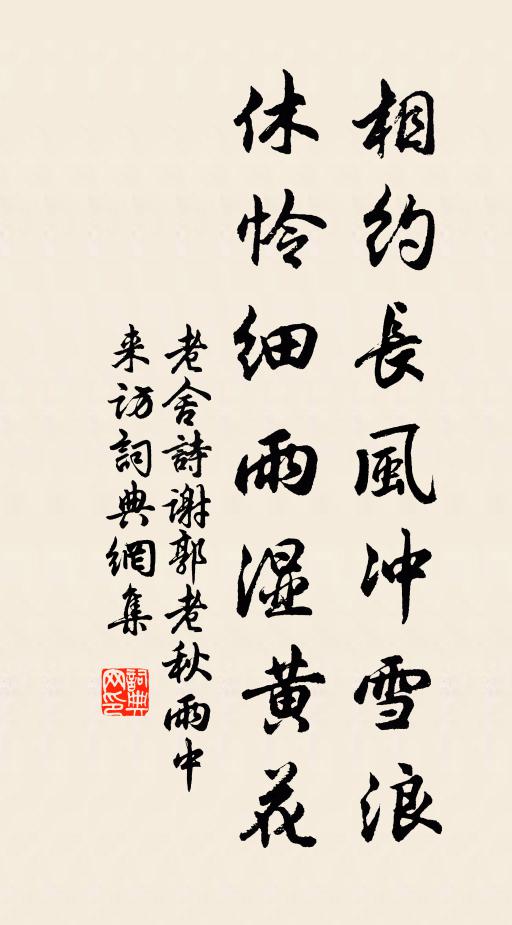 相约長風冲雪浪
休怜细雨湿黄花
老舍詩谢郭老秋雨中
来访詞典網集
詞典網印